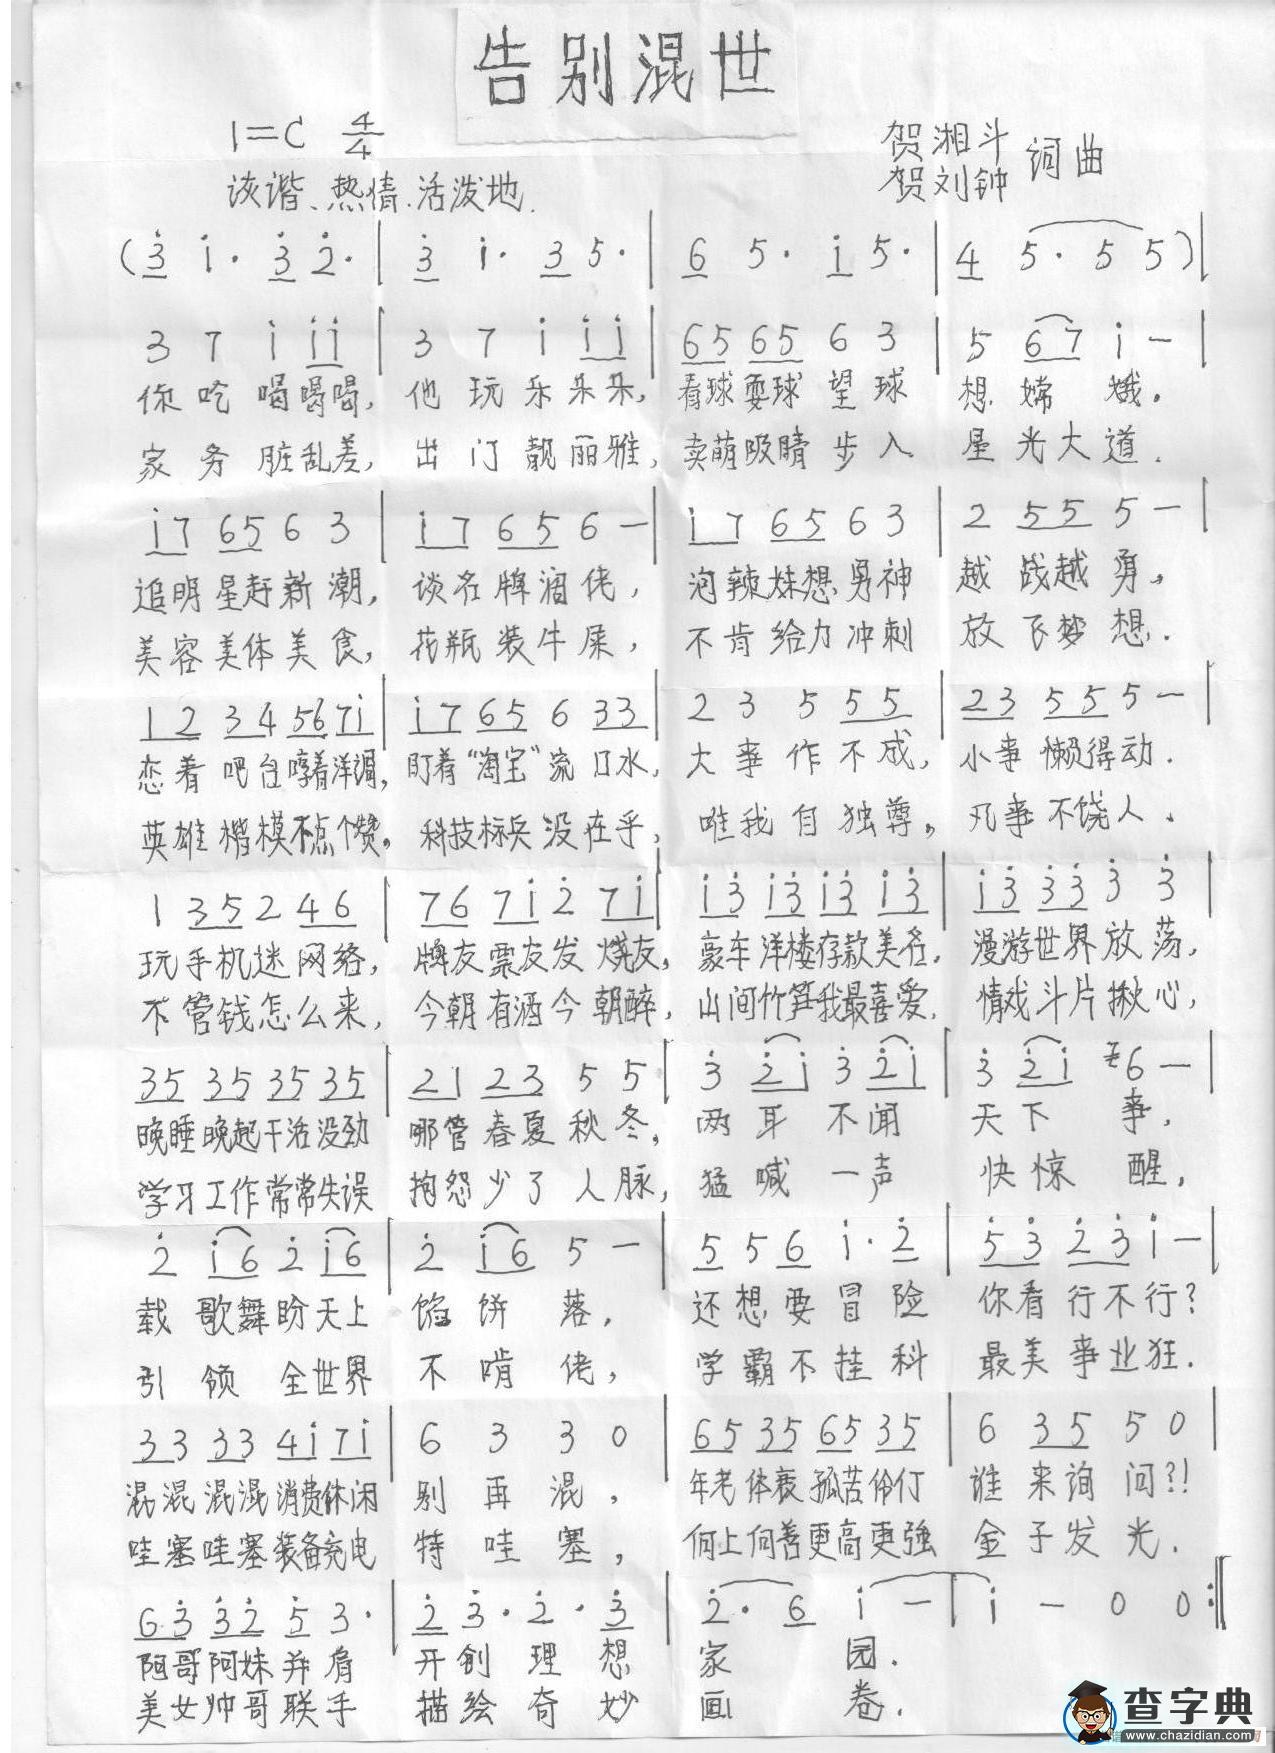 告别混世
1=C 4/4
贺湘斗
贺刘钟 词曲
诙谐、热情.活泼地.
(3 i· 3 2· | 3 i· 3 5· | 6 5· i 5· | 4 5· 5 5)|
3 7 i i i | 3 7 i i i | 65 65 6 3 | 5 67 i — |
你吃喝喝喝, 他玩乐朵朵, 看球耍球望球 想嫦娥。
家务脏乱差, 出门靓丽雅, 卖萌吸睛步入 星光大道.
i7 65 6 3 | i7 65 6 — | i7 65 6 3 | 2 55 5 — |
追明星赶新潮, 谈名牌泪佬, 泡辣妹想男神 越战越勇,
美容美体美食, 花瓶装牛屎, 不肯给力冲刺 放飞梦想.
12 34 56 7i | i7 65 6 33 | 2 3 5 55 | 23 55 5 — |
恋着吧台哼着洋调, 盯着“淘宝”流口水, 大事作不成, 小事懒得动.
英雄楷模不点个赞。 科技标兵没在乎, 唯我自独尊。 凡事不饶人、
1 35 2 46 | 76 7i 2 7i | i3 i3 i3 i3 | i3 33 3 3 |
玩手机迷网络, 牌友票友发烧友, 豪车洋楼存款美名, 漫游世界放荡,
不管钱怎么来, 今朝有酒今朝醉, 山间竹笋我最喜爱, 情戏斗片揪心,
35 35 35 35 | 21 23 5 5 | 3 2i 3 2i | 3 2i 6 — |
晚睡晚起干活没劲 哪管春夏秋冬, 两耳不闻 天下事,
学习工作常常失误 抱怨少了人脉, 猛喊一声 快惊醒,
2 i6 2 i6 | 2 i6 5 — | 5 5 6 i· 2 | 53 23 i — |
载歌舞盼天上 馅饼落, 还想要冒险 你看行不行?
引领全世界 不啃佬, 学霸不挂科 最美事业狂.
33 33 4i 7i | 6 3 3 0 | 65 35 65 35 | 6 35 5 0 |
混混混混消费休闲 别再混, 年老体衰孤苦伶仃 谁来询问?!
哇塞哇塞装备充电 特哇塞, 向上向善更高更强 金子发光.
63 32 5 3· | 2 3· 2· 3 | 2· 6 i — | i — 0 0 :||
阿哥阿妹并肩 开创理想 家园.
美女帅哥联手 描绘奇妙 画卷.
查字典
www.chazidian.com